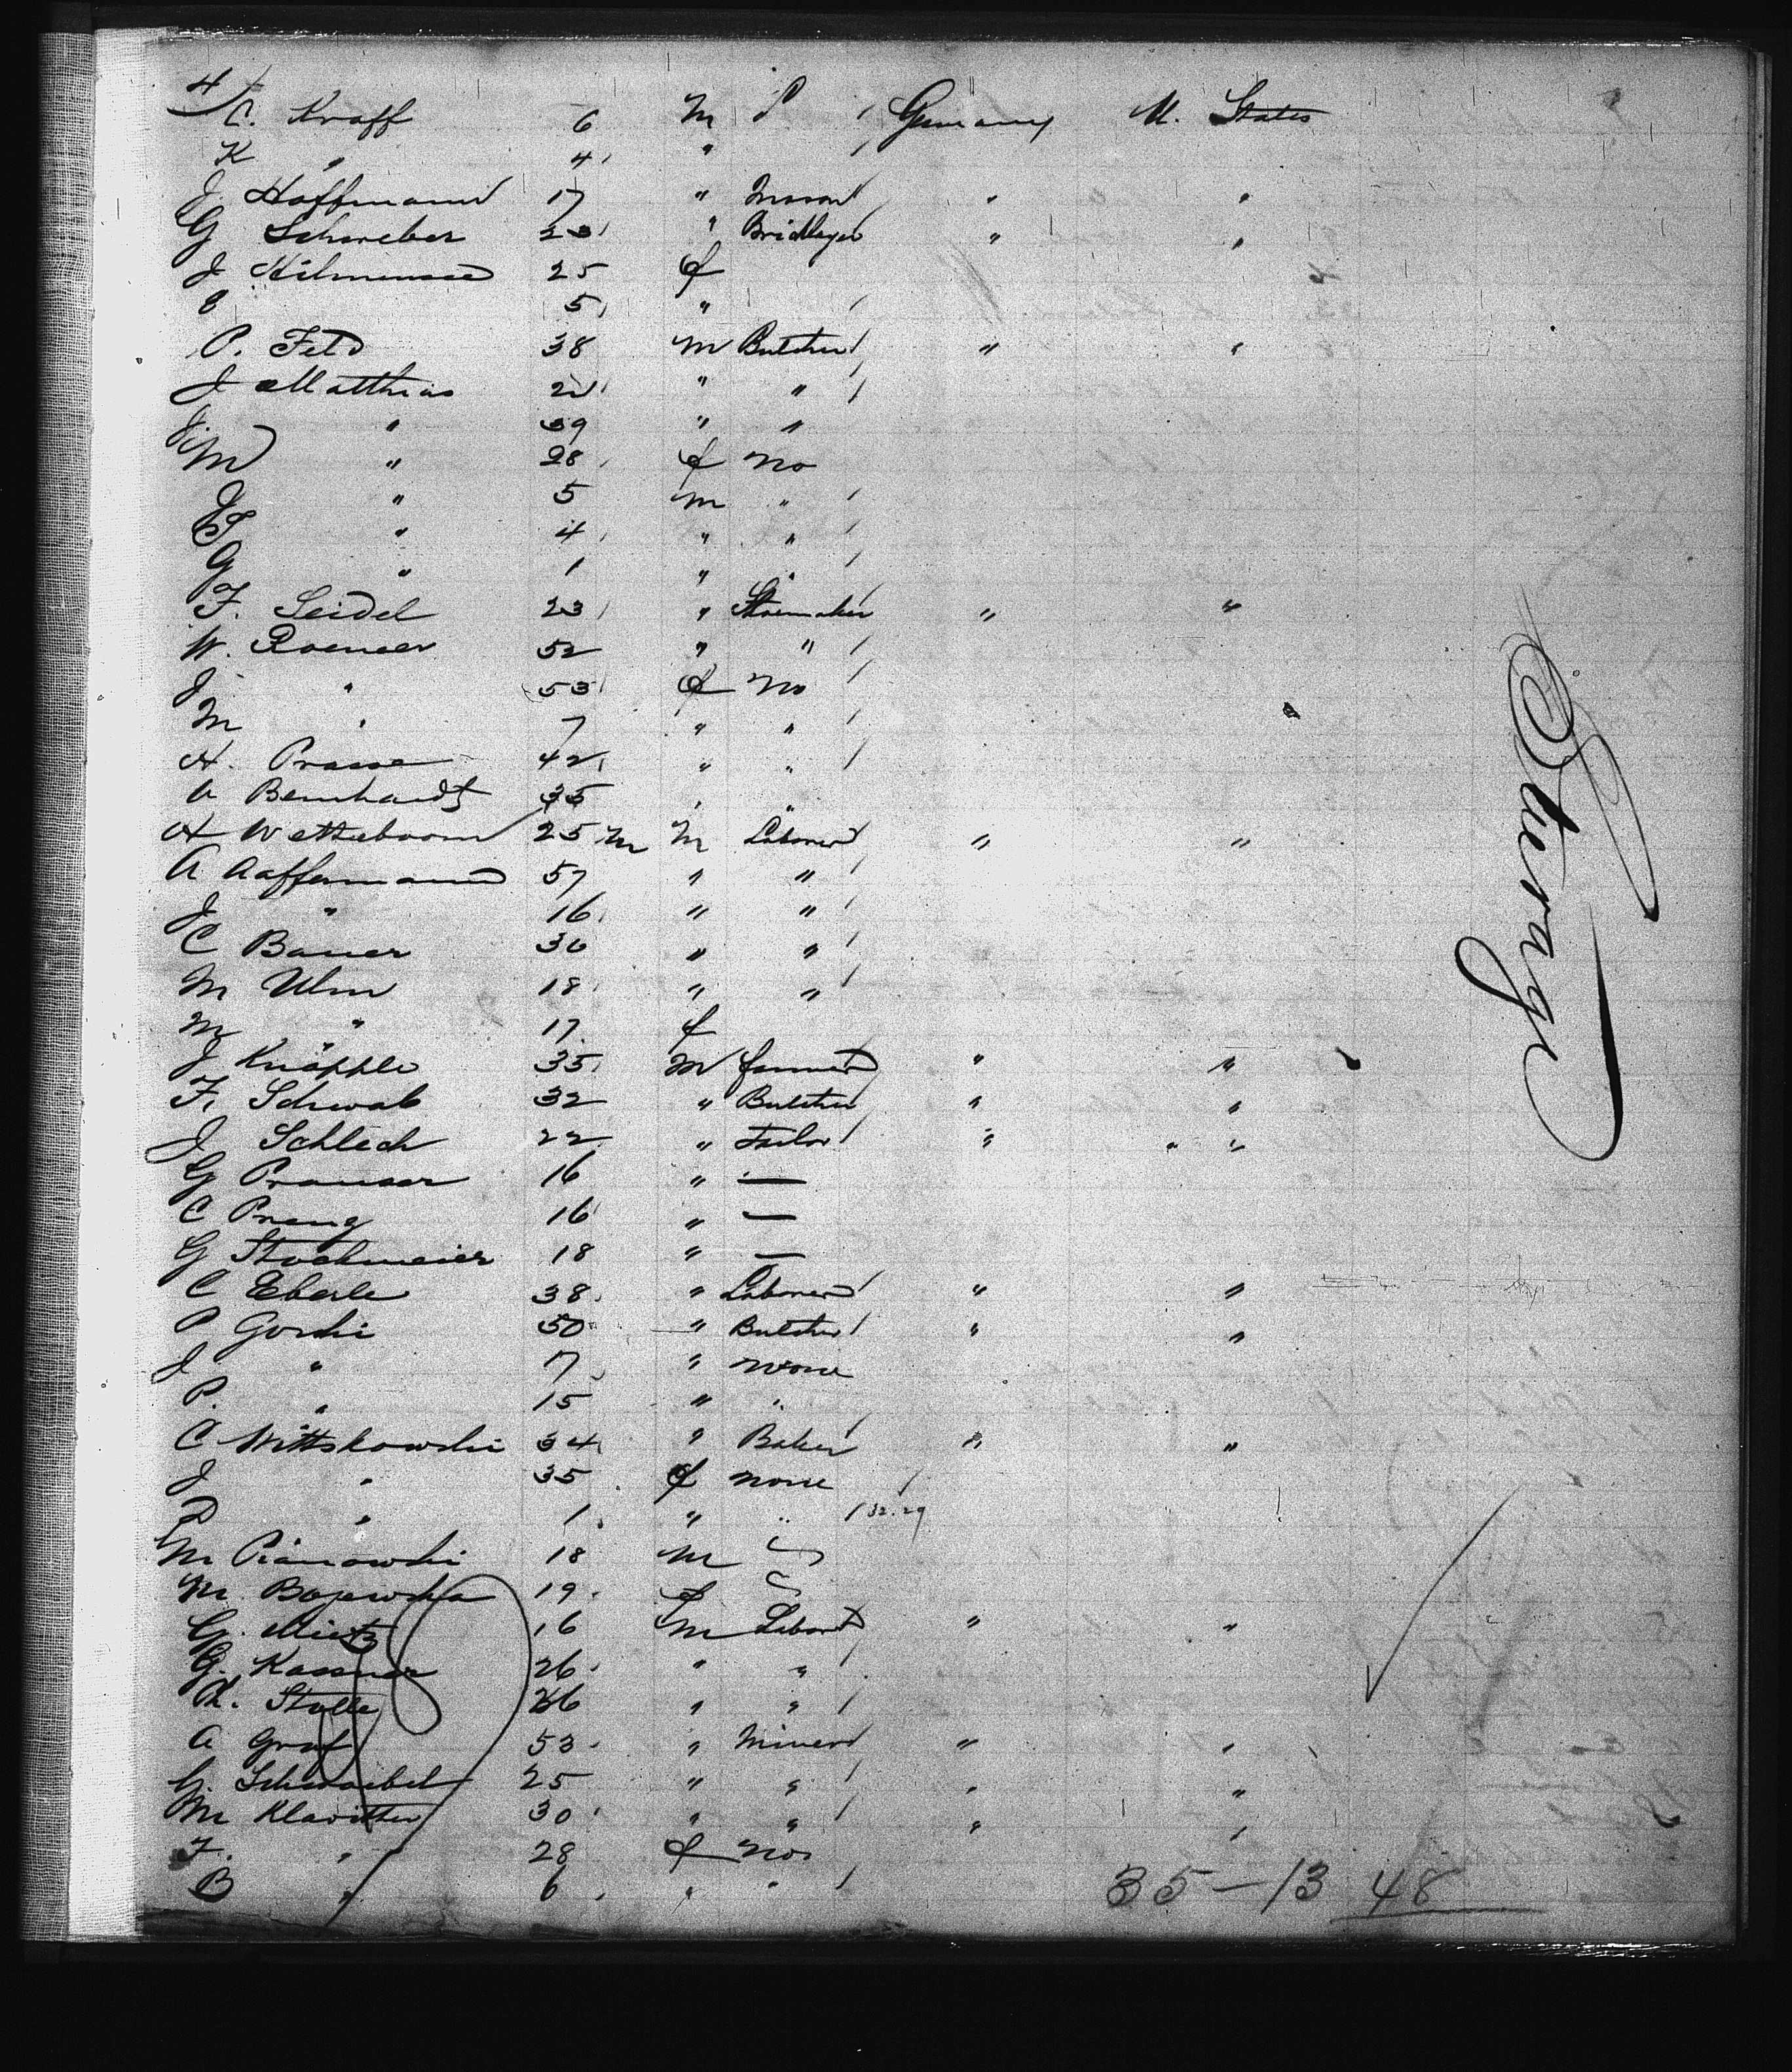 4
C. Kraff 6 M Germany U. States
K " 4 "
J Hoffmann 17 " Mason " "
G Schweber 23 " Bricklayer " "
J 25 f
E " 5 "
P. Feld 38 M Butcher " "
J Matthias 21 " "
J. " 39 " "
M " 28 f No
J " 5 M "
F " 4 " "
G " 1 " "
F. Seidel 23 " Shoemaker " "
W. Roemer 52 " "
J " 53 f No
M " 7 " "
H. Prasse 42 " "
A Bernhardt 35 " "
H Wetteboom 25 m M Laborer " "
A Aaffermann 57 " "
J " 16 " "
C Bauer 36 " "
M Ulm 18 " "
M " 17 f
J Knöpple 35 M farmer " "
F. Schwab 32 " Butcher " "
J Schlech 22 " Tailor " " "
G 16 " —
C Preng 16 " —
G Stockmeier 18 " —
C Eberle 38 " Laborer " "
P Gorski 50 " Butcher " "
J " 17 " none
P. " 15 " "
C Wittskowski 34 " Baker " "
J " 35 f none
P " 1 " " 32.29
M Pianowski 18 M
M. Bojewska 19 f
G. Mietz 16 M Labor " "
G. Kassner 26 " "
R. Stolle 26 " "
A Graf 53 " Miner " "
G. Schwabel 25 " " " "
M Klavitter 30 " " " "
F. " 28 f No
B " 6 " "
35 – 13 48
Steerage